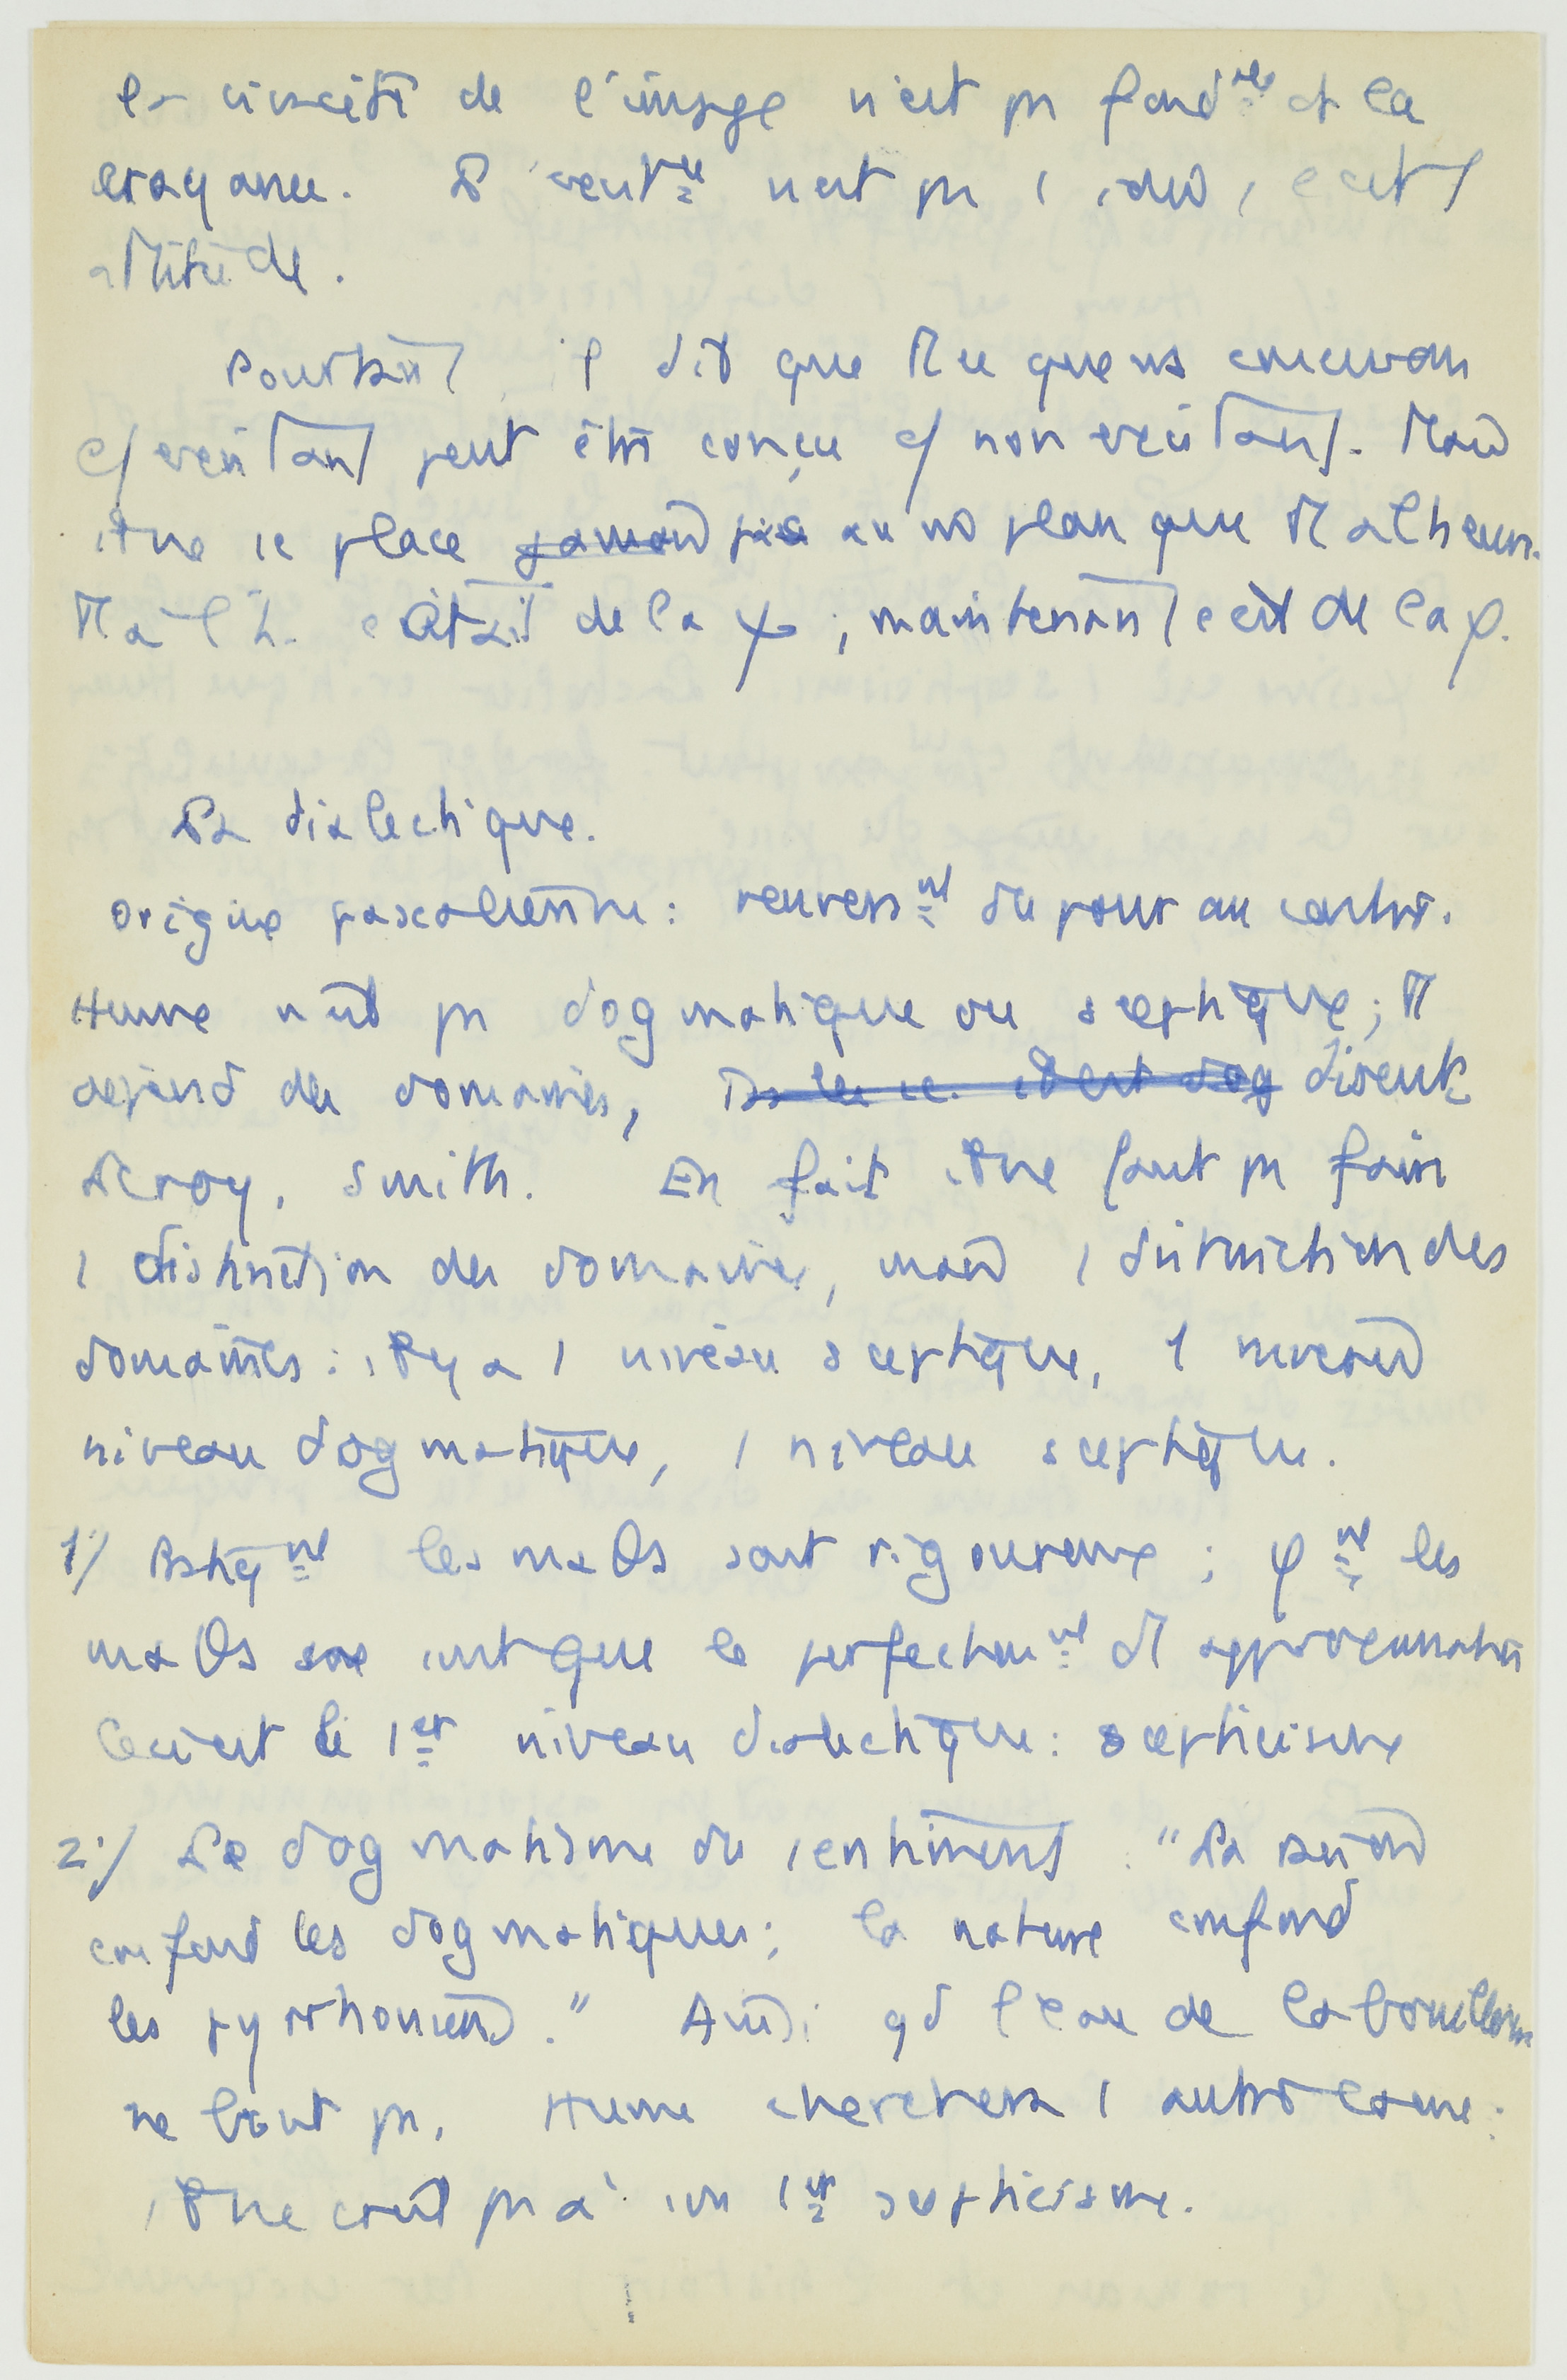 la vivacité de l'image n'est pas fond^ale et la
croyance. L'exist^ce n'est pas 1 idée, c'est 1
attitude.
Pourtant il dit que tt ce que ns concevons
c/ existant peut être conçu c/ non existant. Mais
il ne se place jamais pas au m̂ plan que Malheureux.
Malh. c'était de la ψ ; maintenant c'est de la φ.
La dialectique.
Origine pascalienne : renvers^nt du pour au contre.
Hume n'est pas dogmatique ou sceptique ; tt
dépend des domaines, Ds les sc. il est dog disent
Leroy, Smith. En fait il ne faut pas faire
1 distinction des domaines, mais 1 distinction des
domaines : il y a 1 niveau sceptique, 1
niveau dogmatique, 1 niveau sceptique.
1°/ Pratiq^nt les maths sont rigoureuses ; φ^nt les
maths que le perfection^nt d'1 approximation
Ceci est le 1^er niveau dialectique : scepticisme
2°/ Le dogmatisme du sentiment : "La raison
confond les dogmatiques ; la nature confond
les pyrrhoniens." Ainsi qd l'eau de la bouilloire
ne bout pas, Hume cherchera 1 autre cause :
il ne croit pas à son 1^er scepticisme.